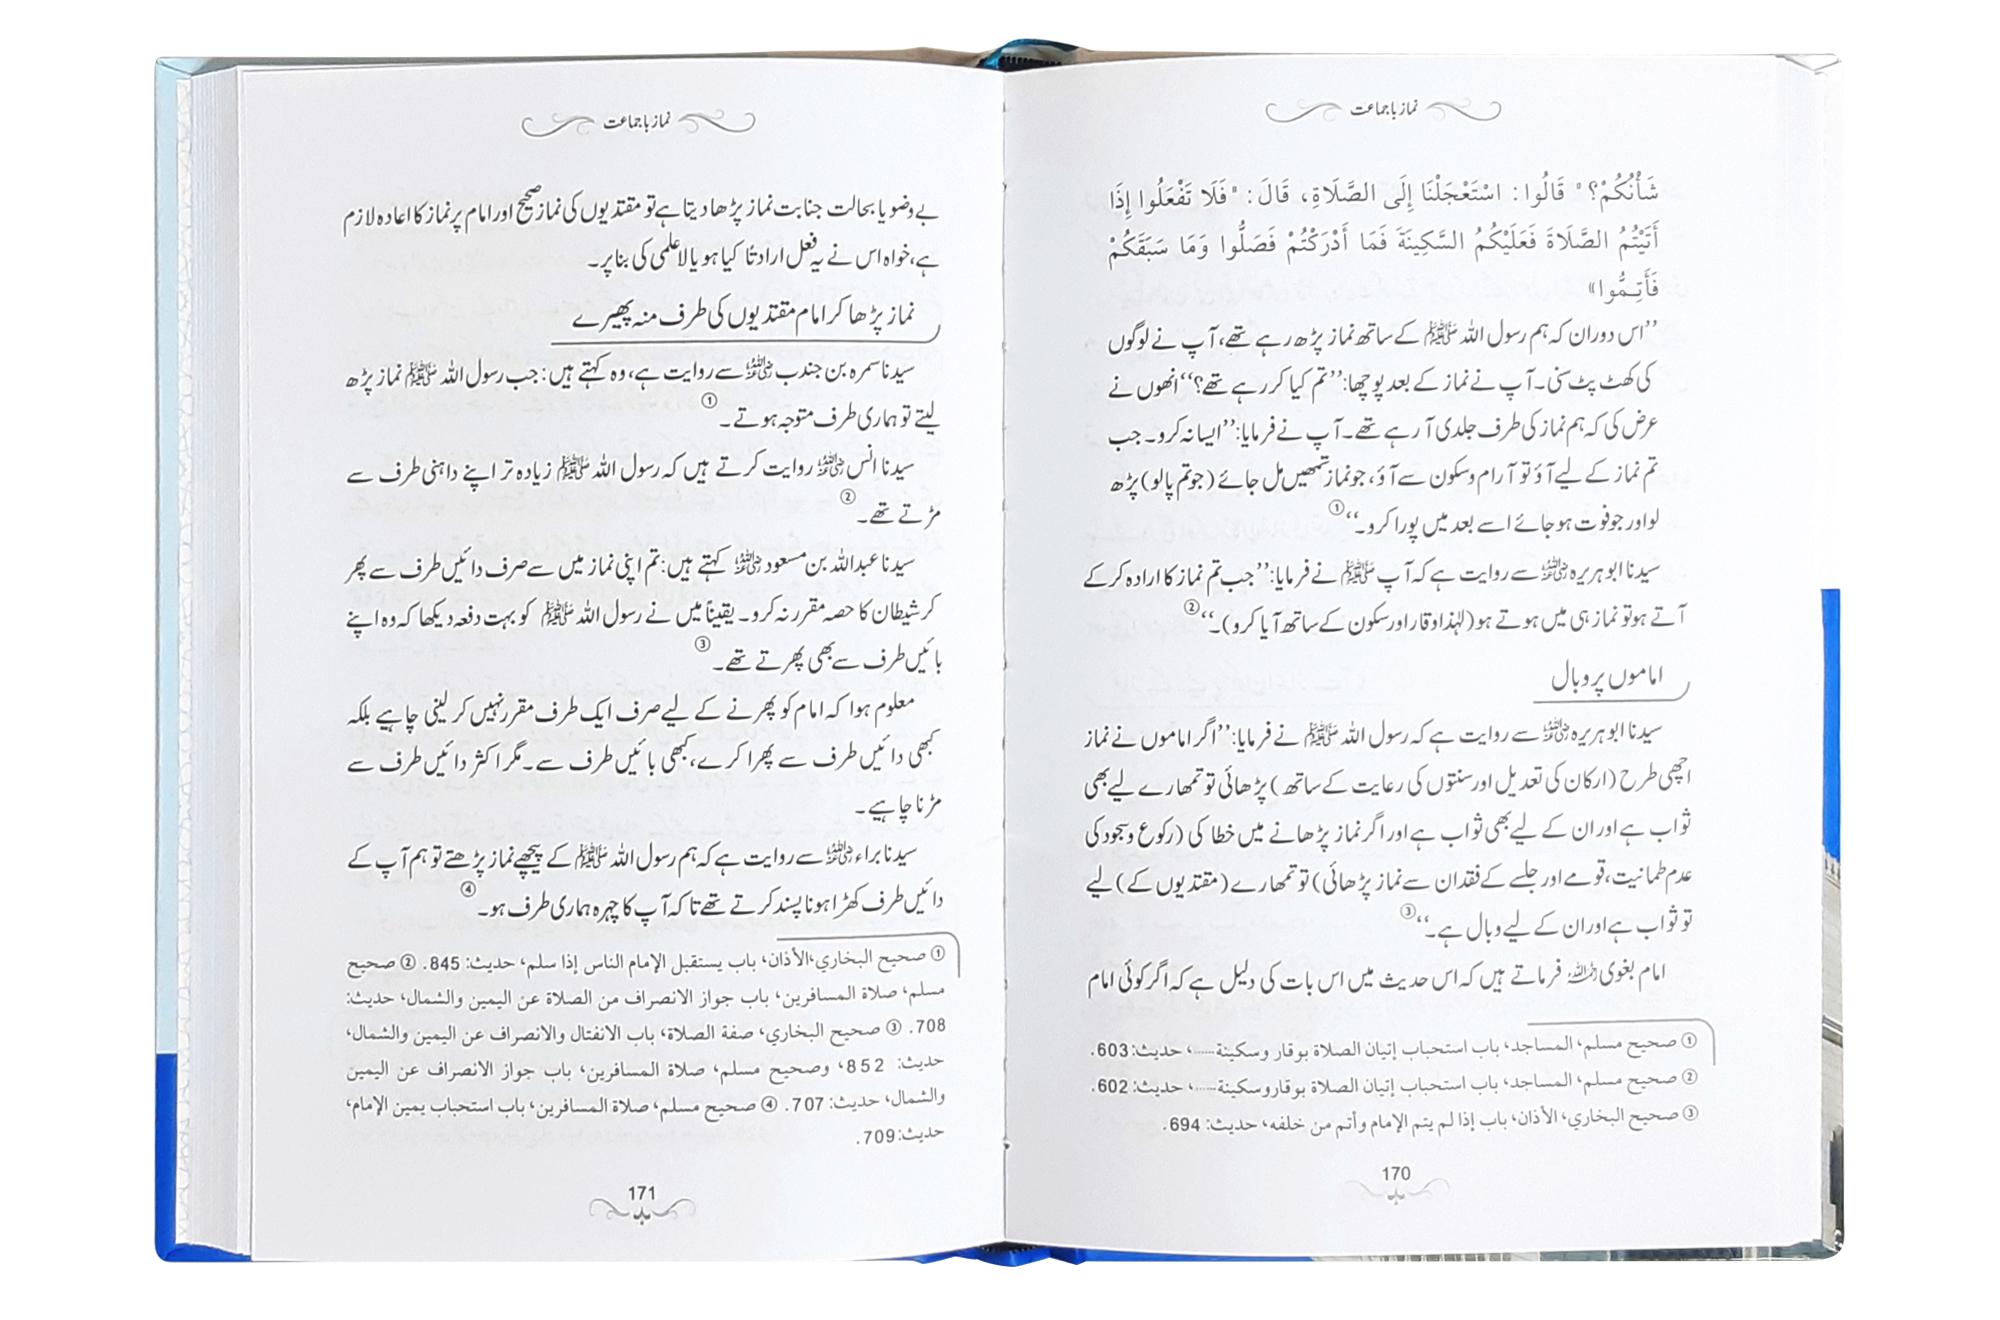 نماز باجماعت
شَأْنُكُمْ؟» قَالُوا: اسْتَعْجَلْنَا إِلَى الصَّلَاةِ، قَالَ: «فَلَا تَفْعَلُوا إِذَا
أَتَيْتُمُ الصَّلَاةَ فَعَلَيْكُمُ السَّكِينَةَ فَمَا أَدْرَكْتُمْ فَصَلُّوا وَمَا سَبَقَكُمْ
فَأَتِمُّوا»
’’اس دوران کہ ہم رسول اللہ ﷺ کے ساتھ نماز پڑھ رہے تھے، آپ نے لوگوں
کی کھٹ پٹ سنی۔ آپ نے نماز کے بعد پوچھا: ’’تم کیا کر رہے تھے؟‘‘ انھوں نے
عرض کی کہ ہم نماز کی طرف جلدی آ رہے تھے۔ آپ نے فرمایا: ’’ایسا نہ کرو۔ جب
تم نماز کے لیے آؤ تو آرام و سکون سے آؤ، جو نماز تمھیں مل جائے (جو تم پالو) پڑھ
لو اور جو فوت ہو جائے اسے بعد میں پورا کرو۔‘‘①
سیدنا ابو ہریرہ رضی اللہ عنہ سے روایت ہے کہ آپ ﷺ نے فرمایا: ’’جب تم نماز کا ارادہ کر کے
آتے ہو تو نماز ہی میں ہوتے ہو (لہٰذا وقار اور سکون کے ساتھ آیا کرو)۔‘‘②
اماموں پر وبال
سیدنا ابو ہریرہ رضی اللہ عنہ سے روایت ہے کہ رسول اللہ ﷺ نے فرمایا: ’’اگر اماموں نے نماز
اچھی طرح (ارکان کی تعدیل اور سنتوں کی رعایت کے ساتھ) پڑھائی تو تمھارے لیے بھی
ثواب ہے اور ان کے لیے بھی ثواب ہے اور اگر نماز پڑھانے میں خطا کی (رکوع و سجود کی
عدم طمانیت، قومے اور جلسے کے فقدان سے نماز پڑھائی) تو تمھارے (مقتدیوں کے) لیے
تو ثواب ہے اور ان کے لیے وبال ہے۔‘‘③
امام بغوی رحمہ اللہ فرماتے ہیں کہ اس حدیث میں اس بات کی دلیل ہے کہ اگر کوئی امام
① صحيح مسلم، المساجد، باب استحباب إتيان الصلاة بوقار وسكينة.....، حديث: 603.
② صحيح مسلم، المساجد، باب استحباب إتيان الصلاة بوقار وسكينة.....، حديث: 602.
③ صحيح البخاري، الأذان، باب إذا لم يتم الإمام وأتم من خلفه، حديث: 694.
170
نماز باجماعت
بے وضو یا بحالت جنابت نماز پڑھا دیتا ہے تو مقتدیوں کی نماز صحیح اور امام پر نماز کا اعادہ لازم
ہے، خواہ اس نے یہ فعل ارادتًا کیا ہو یا لاعلمی کی بنا پر۔
نماز پڑھا کر امام مقتدیوں کی طرف منہ پھیرے
سیدنا سمرہ بن جندب رضی اللہ عنہ سے روایت ہے، وہ کہتے ہیں: جب رسول اللہ ﷺ نماز پڑھ
لیتے تو ہماری طرف متوجہ ہوتے۔①
سیدنا انس رضی اللہ عنہ روایت کرتے ہیں کہ رسول اللہ ﷺ زیادہ تر اپنے داہنی طرف سے
مڑتے تھے۔②
سیدنا عبداللہ بن مسعود رضی اللہ عنہ کہتے ہیں: تم اپنی نماز میں سے صرف دائیں طرف سے پھر
کر شیطان کا حصہ مقرر نہ کرو۔ یقیناً میں نے رسول اللہ ﷺ کو بہت دفعہ دیکھا کہ وہ اپنے
بائیں طرف سے بھی پھرتے تھے۔③
معلوم ہوا کہ امام کو پھرنے کے لیے صرف ایک طرف مقرر نہیں کر لینی چاہیے بلکہ
کبھی دائیں طرف سے پھرا کرے، کبھی بائیں طرف سے۔ مگر اکثر دائیں طرف سے
مڑنا چاہیے۔
سیدنا براء رضی اللہ عنہ سے روایت ہے کہ ہم رسول اللہ ﷺ کے پیچھے نماز پڑھتے تو ہم آپ کے
دائیں طرف کھڑا ہونا پسند کرتے تھے تاکہ آپ کا چہرہ ہماری طرف ہو۔④
① صحيح البخاري،الأذان، باب يستقبل الإمام الناس إذا سلم، حديث: 845. ② صحيح
مسلم، صلاة المسافرين، باب جواز الانصراف من الصلاة عن اليمين والشمال، حديث:
708. ③ صحيح البخاري، صفة الصلاة، باب الانفتال والانصراف عن اليمين والشمال،
حديث: 852، وصحيح مسلم، صلاة المسافرين، باب جواز الانصراف عن اليمين
والشمال، حديث: 707. ④ صحيح مسلم، صلاة المسافرين، باب استحباب يمين الإمام،
حديث: 709.
171